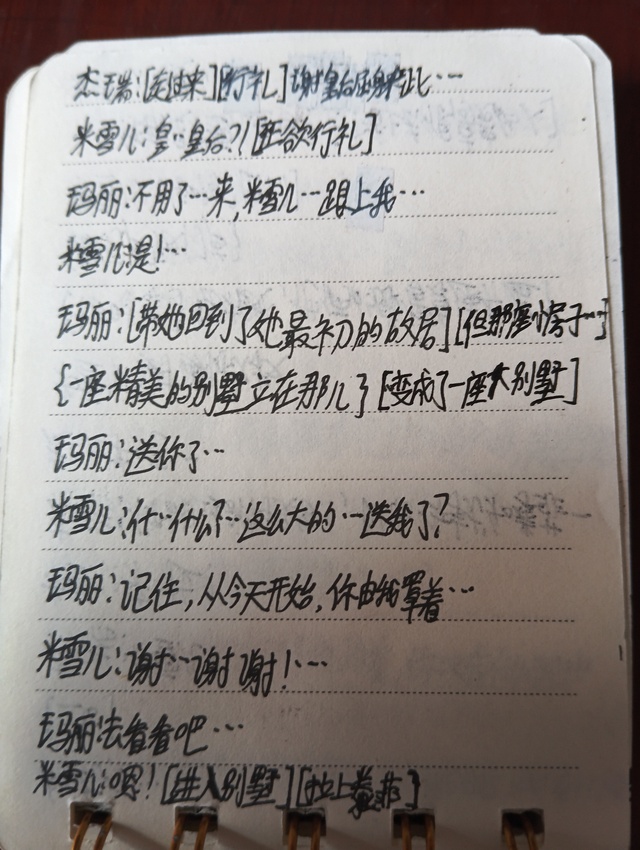 杰瑞:[走过来][行礼]谢皇后屈身来此…
米雪儿:皇…皇后?![正欲行礼]
玛丽:不用了…来,米雪儿…跟上我…
米雪儿:是!…
玛丽:[带她回到了她最初的故居][但那座小房子…]
{一座精美的别墅立在那儿了[变成了一座大别墅]
玛丽:送你了…
米雪儿:什…什么?…这么大的…送我了?
玛丽:记住,从今天开始,你由我罩着…
米雪儿:谢…谢谢!…
玛丽:去看看吧…
米雪儿:嗯![进入别墅][拉上